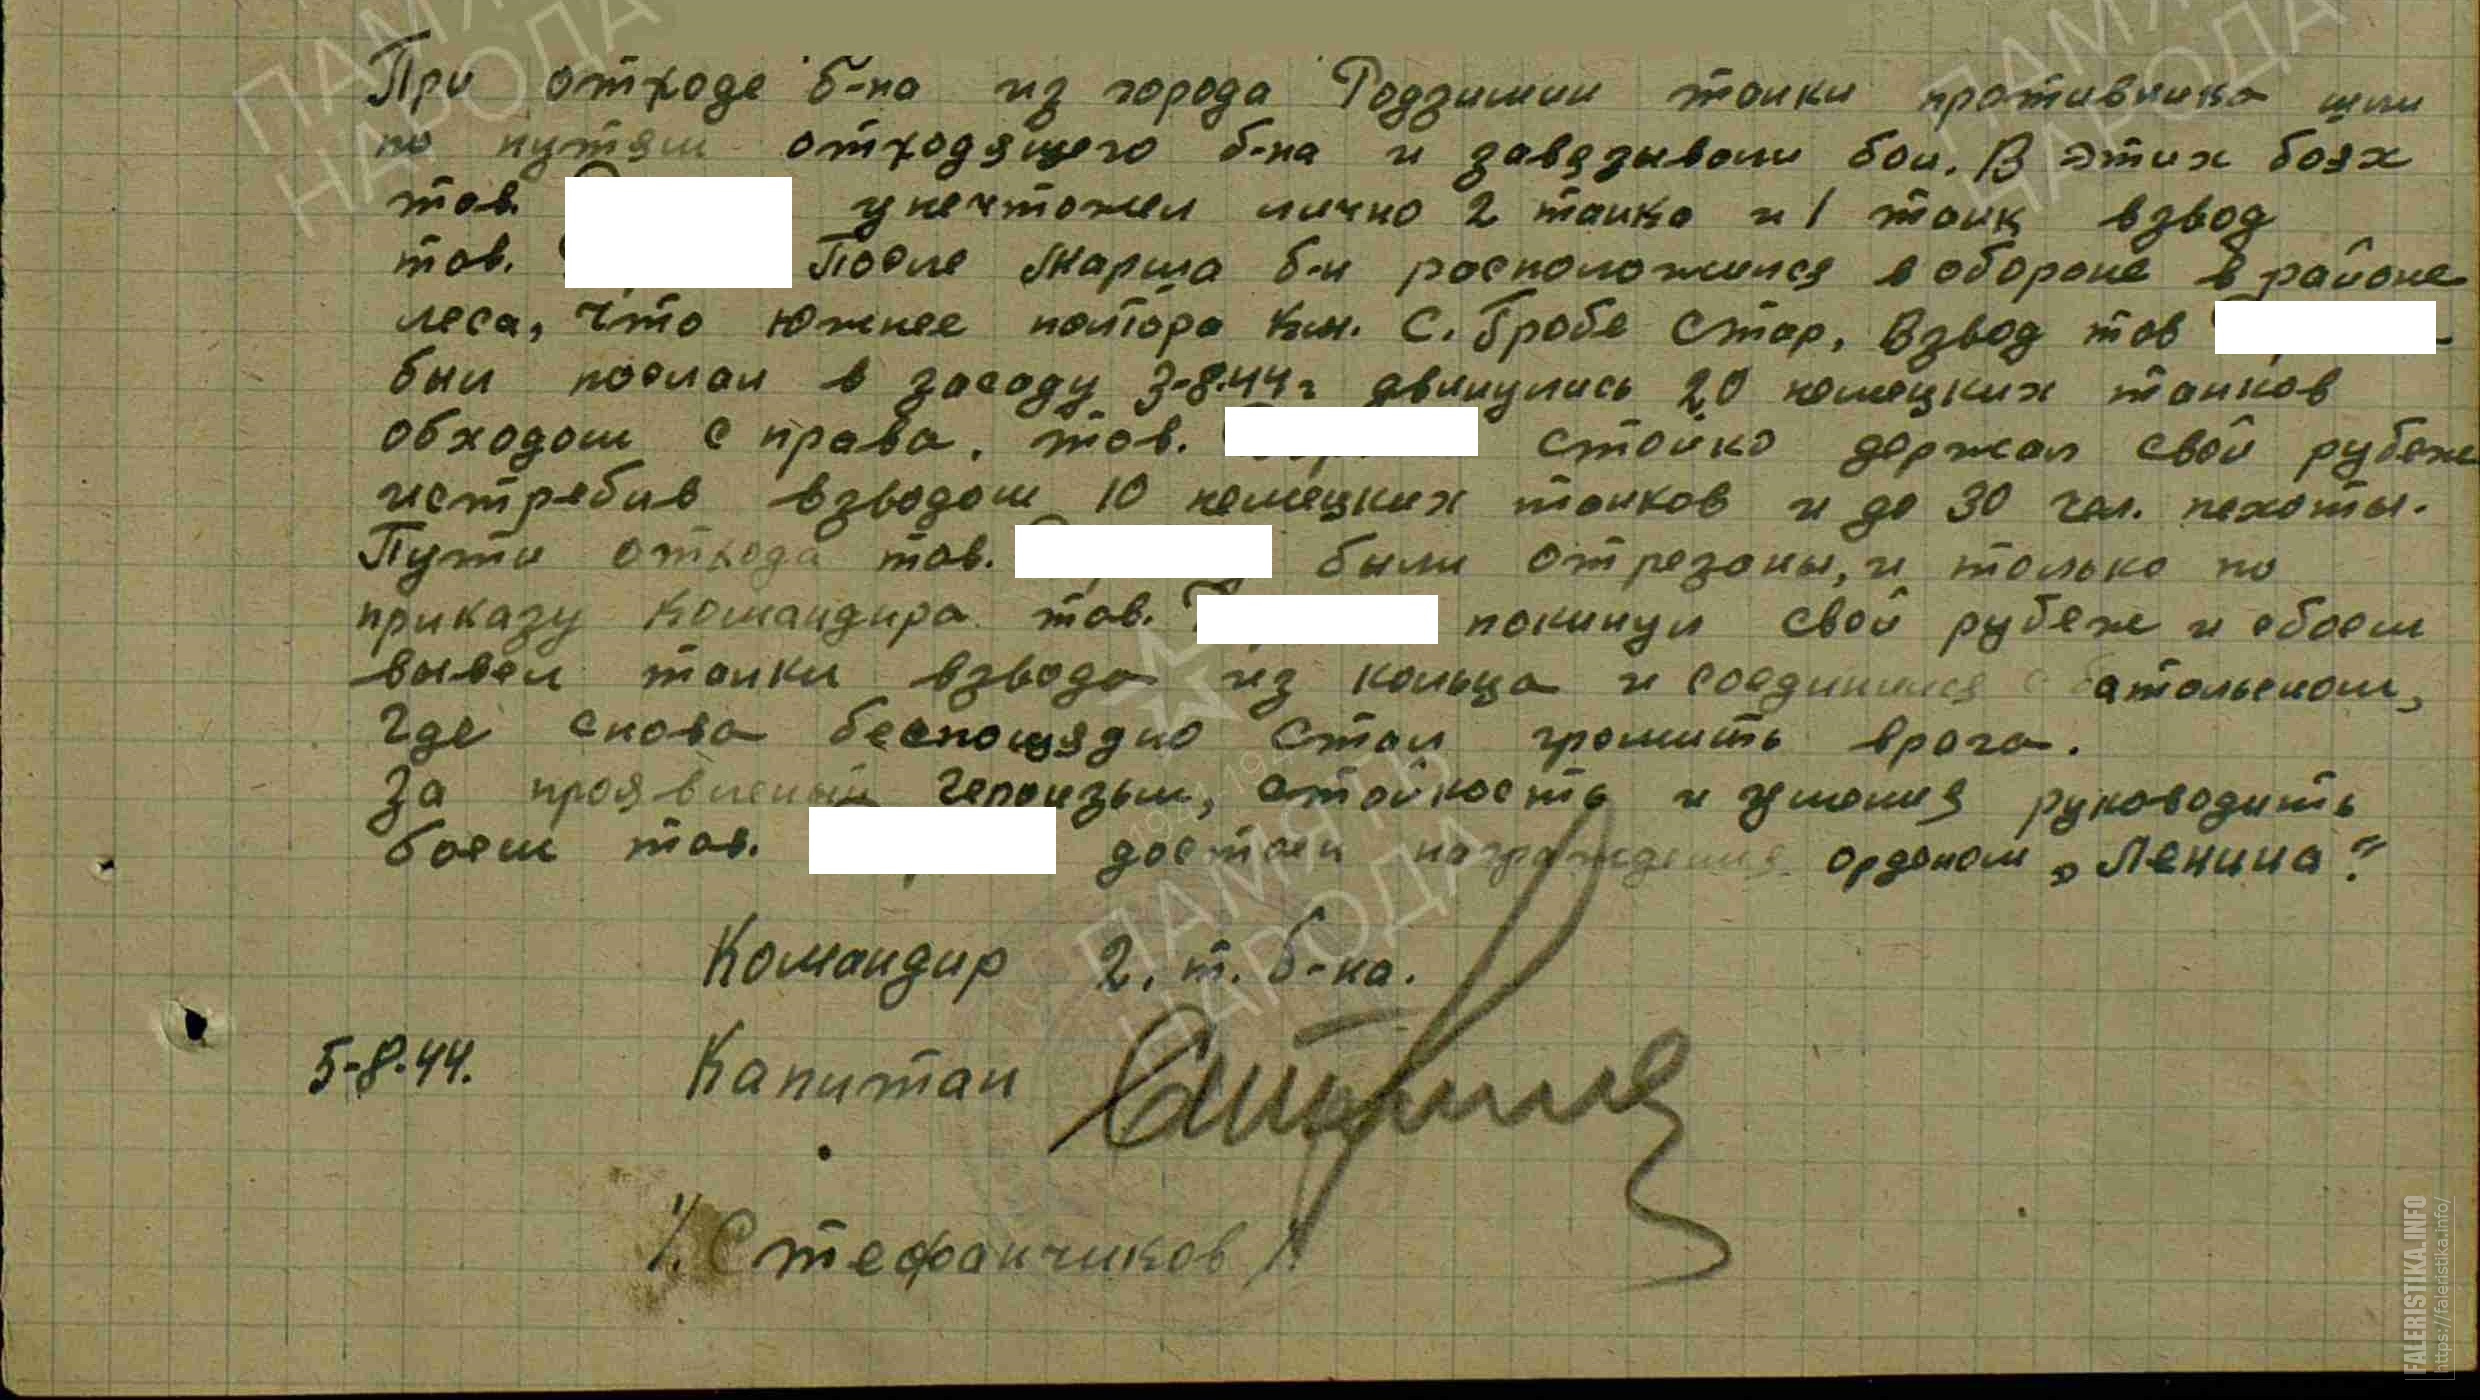 При отходе б-на из города Родзимин танки противника шли
по путям отходящего б-на и завязывали бои. В этих боях
тов. унечтожил лично 2 танка и 1 танк взвод
тов. После марша б-н расположился в обороне в районе
леса, что южнее полтора км. С. Гробе Стар, Взвод тов
был послан в засаду 3-8.44г двинулись 20 немецких танков
обходом с права. тов. стойко держал свой рубеж
истребив взводом 10 немецких танков и до 30 чел. пехоты.
Пути отхода тов. были отрезаны, и только по
приказу командира тов. покинул свой рубеж и сбоем
вывел танки взвода из кольца и соединился с батальеном,
где снова беспощядно стал громить врага.
За проявленый героизым, стойкость и умения руководить
боем тов. достоен награждения орденом „Ленина"
Командир 2. т. б-на.
5-8.44. Капитан
/. Стефанчиков /.
ПАМЯТЬ НАРОДА
1941 1945
FALERISTIKA.INFO
https://faleristika.info/